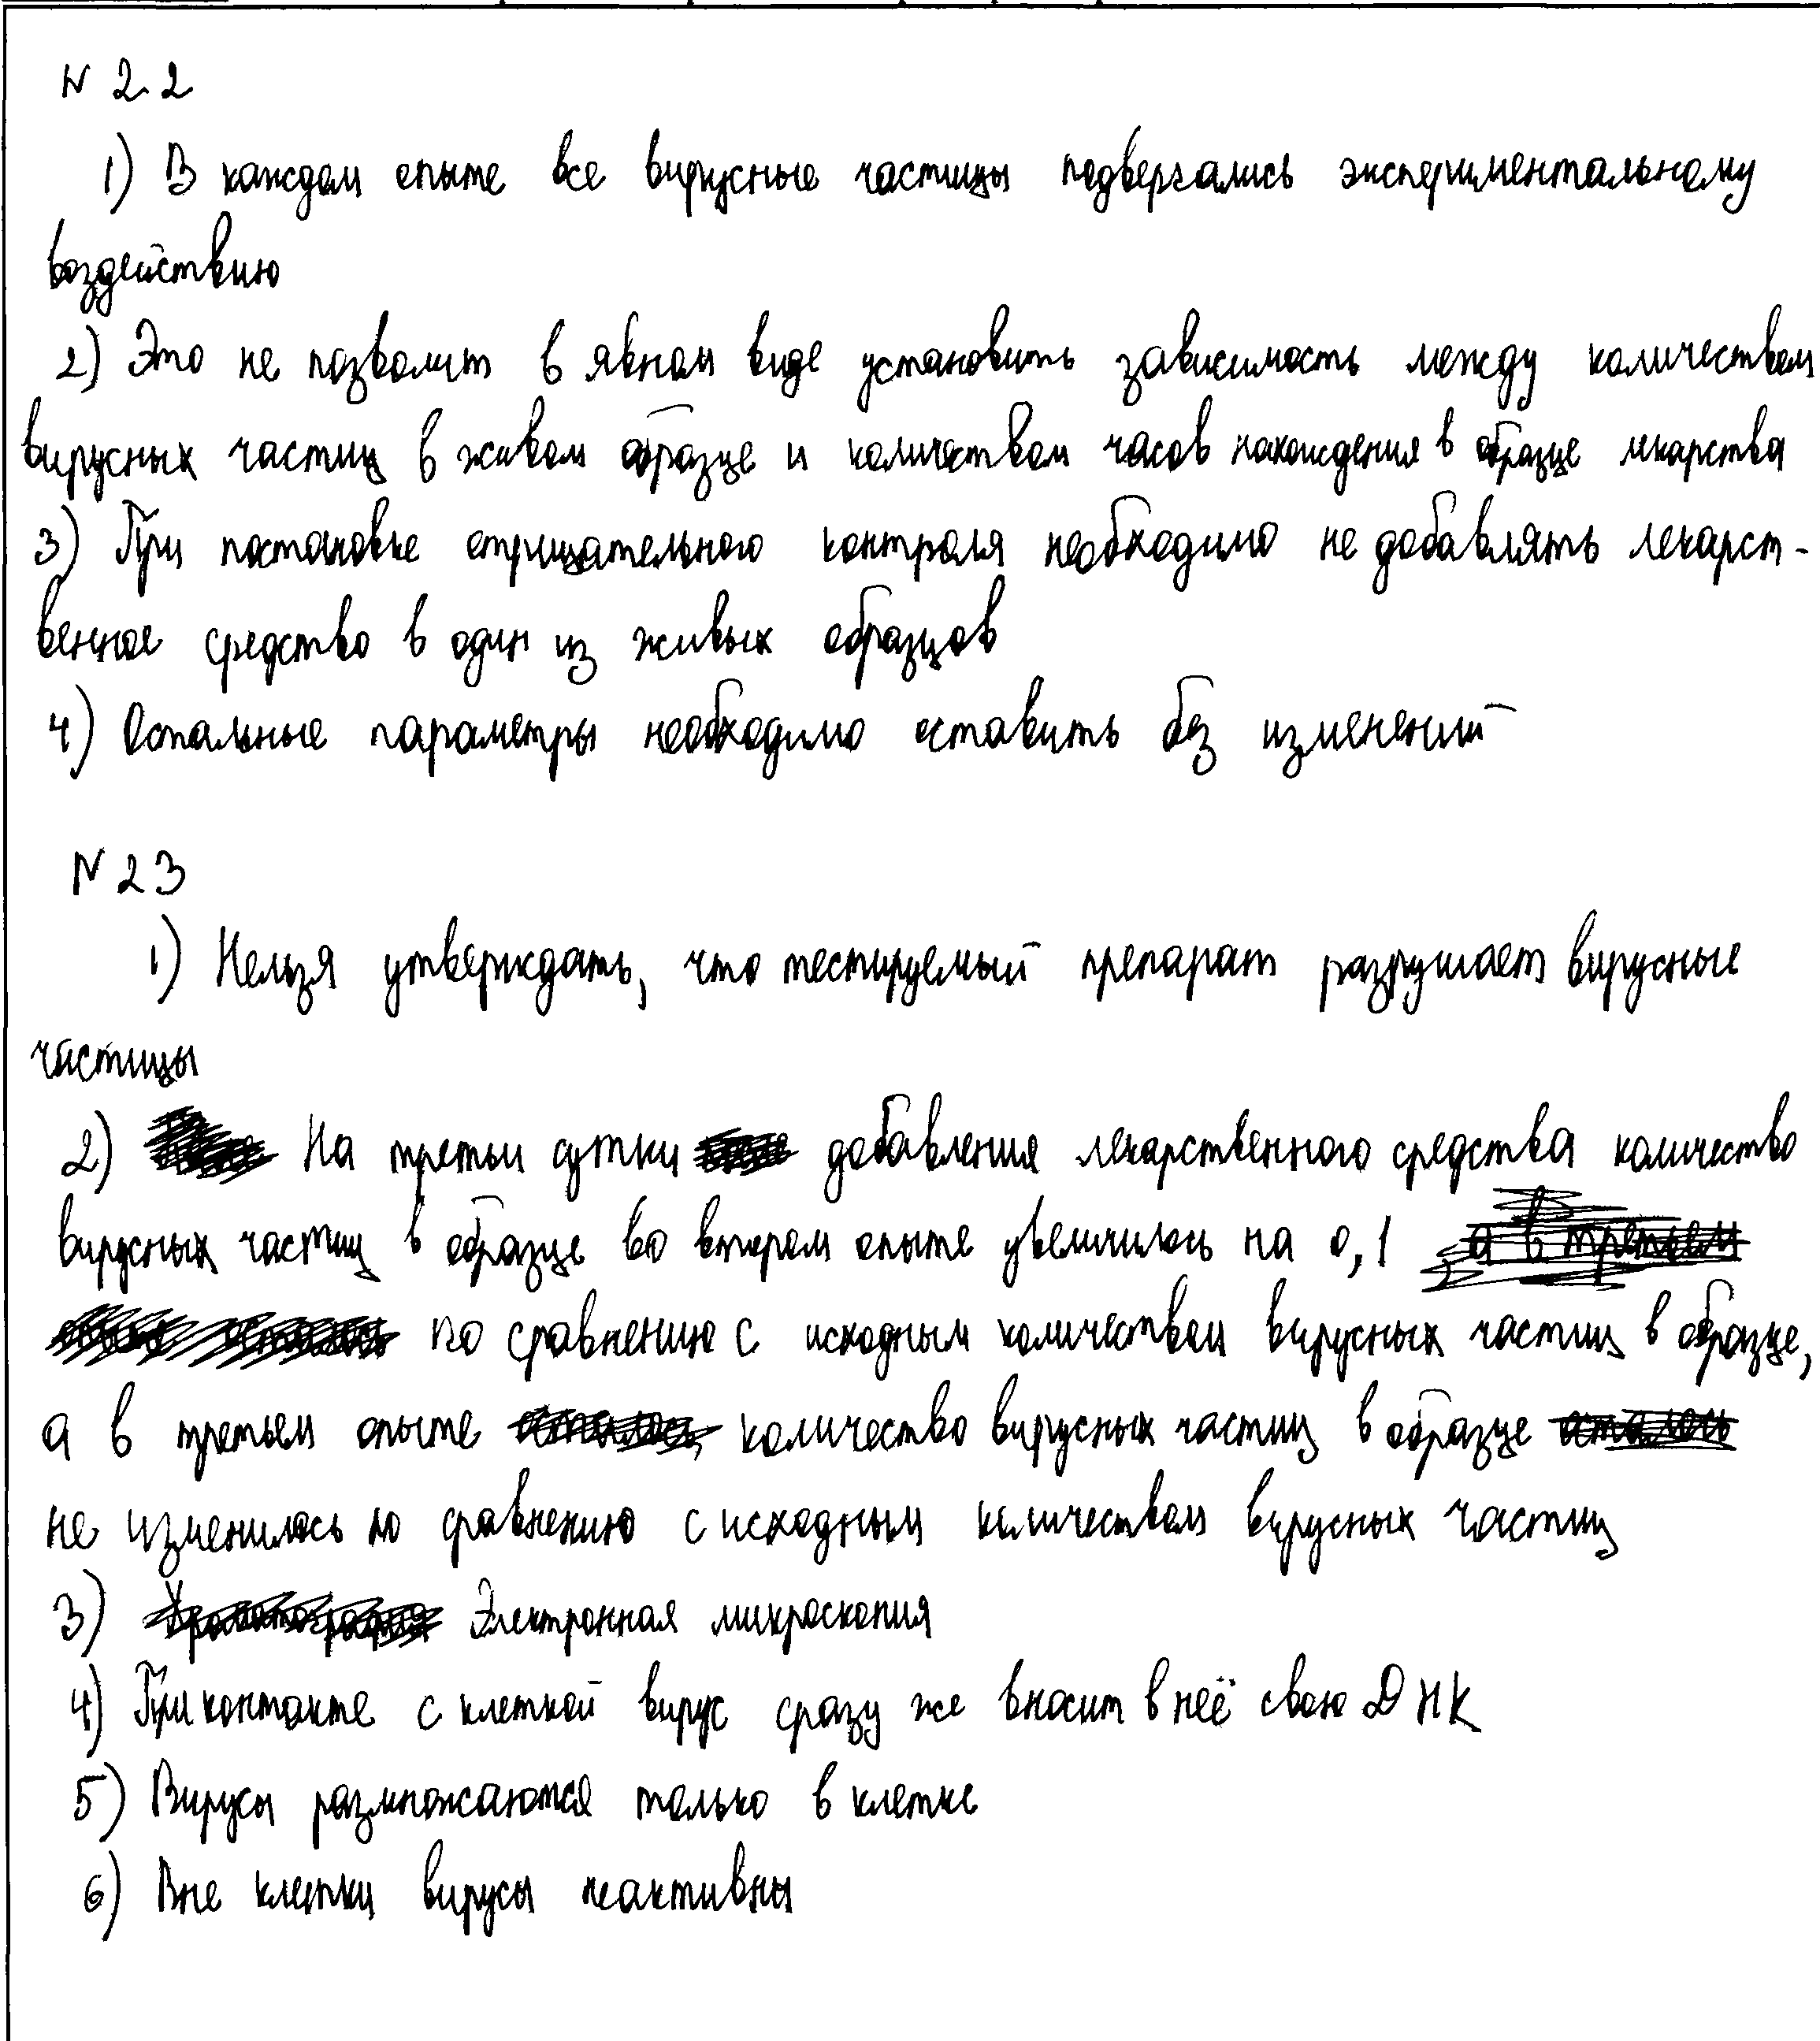 N 22
1) В каждом опыте все вирусные частицы подвергались экспериментальному
воздействию
2) Это не позволит в явном виде установить зависимость между количеством
вирусных частиц в живом образце и количеством часов нахождения в образце лекарства
3) При постановке отрицательного контроля необходимо не добавлять лекарст-
венное средство в один из живых образцов
4) Остальные параметры необходимо оставить без изменений
N 23
1) Нельзя утверждать, что тестируемый препарат разрушает вирусные
частицы
2) На третьи сутки добавления лекарственного средства количество
вирусных частиц в образце во втором опыте увеличилось на 0,1
по сравнению с исходным количеством вирусных частиц в образце,
а в третьем опыте количество вирусных частиц в образце
не изменилось по сравнению с исходным количеством вирусных частиц
3) Электронная микроскопия
4) При контакте с клеткой вирус сразу же вносит в неё свою ДНК
5) Вирусы размножаются только в клетке
6) Вне клетки вирусы неактивны